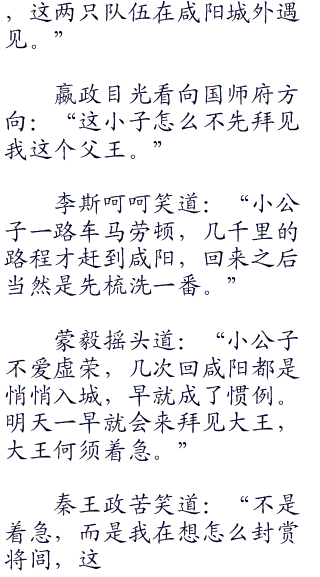 ，这两只队伍在咸阳城外遇
见。”
嬴政目光看向国师府方
向：“这小子怎么不先拜见
我这个父王。”
李斯呵呵笑道：“小公
子一路车马劳顿，几千里的
路程才赶到咸阳，回来之后
当然是先梳洗一番。”
蒙毅摇头道：“小公子
不爱虚荣，几次回咸阳都是
悄悄入城，早就成了惯例。
明天一早就会来拜见大王，
大王何须着急。”
秦王政苦笑道：“不是
着急，而是我在想怎么封赏
将闾，这